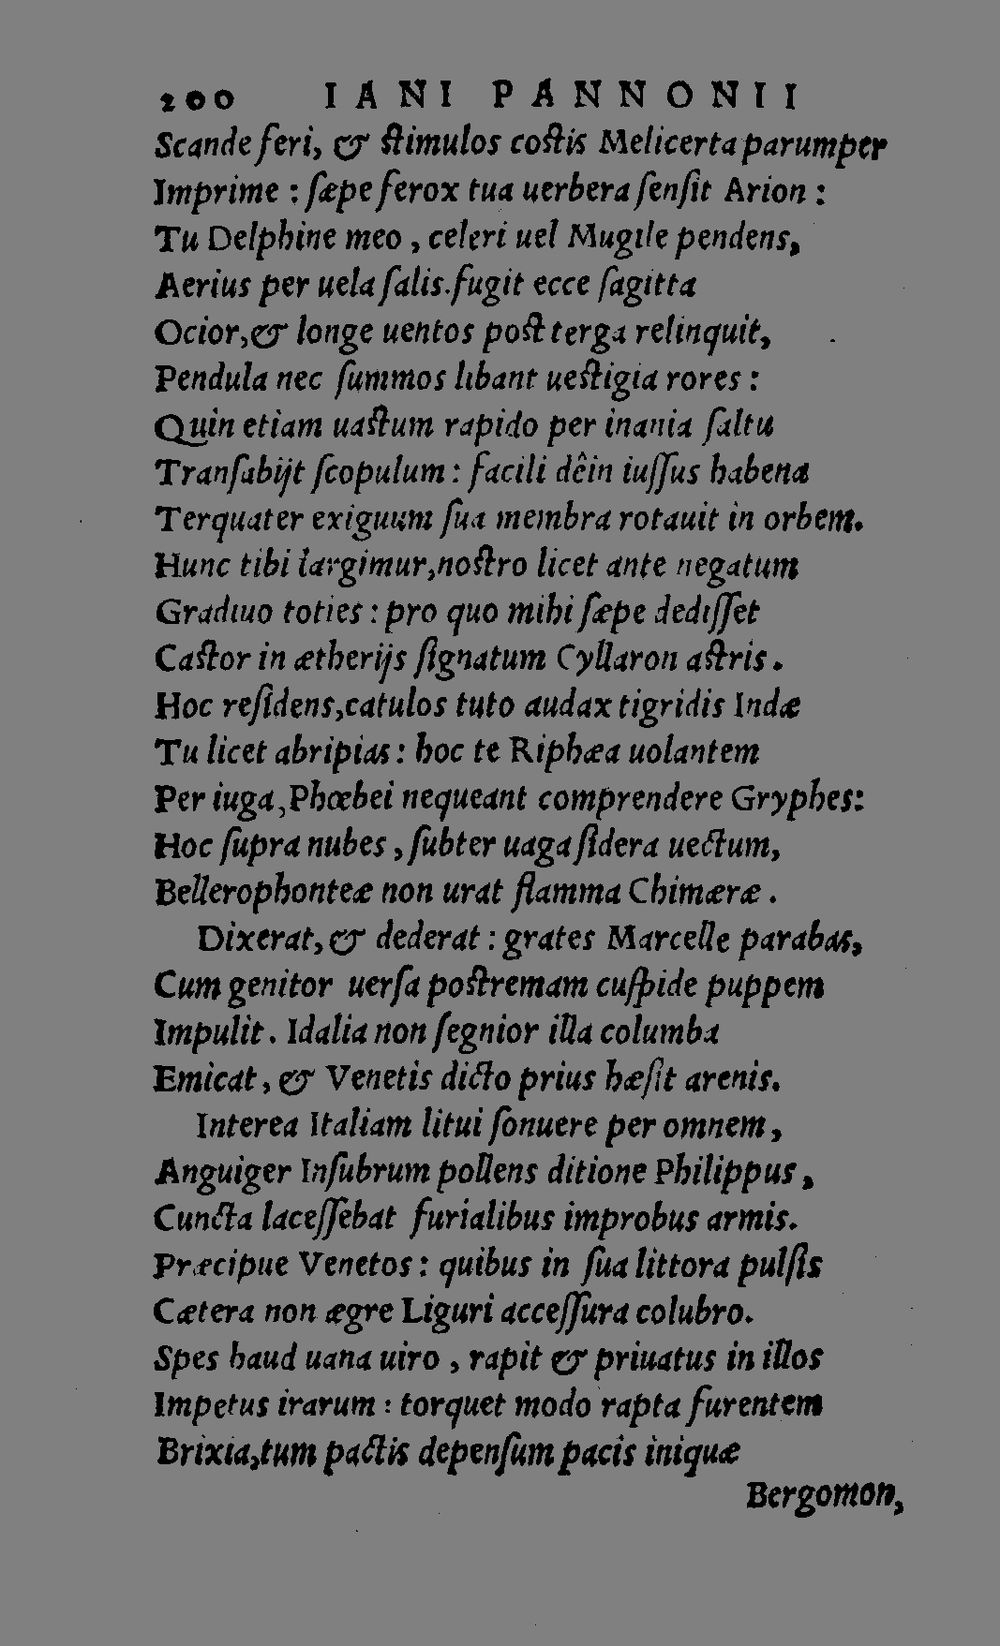 200 IANI PANNONII
Scande feri, & ſtimulos coſtis Melicerta parumper
Imprime : ſæpe ferox tua uerbera ſenſit Arion :
Tu Delphine meo , celeri uel Mugile pendens,
Aerius per uela ſalis.fugit ecce ſagitta
Ocior,& longe uentos poſt terga relinquit,
Pendula nec ſummos libant ueſtigia rores :
Quin etiam uaſtum rapido per inania ſaltu
Tranſabijt ſcopulum : facili dêin iuſſus habena
Terquater exiguum ſua membra rotauit in orbem.
Hunc tibi largimur,noſtro licet ante negatum
Gradiuo toties : pro quo mihi ſæpe dediſſet
Caſtor in ætherijs ſignatum Cyllaron aſtris .
Hoc reſidens,catulos tuto audax tigridis Indæ
Tu licet abripias : hoc te Riphæa uolantem
Per iuga,Phœbei nequeant comprendere Gryphes:
Hoc ſupra nubes , ſubter uaga ſidera uectum,
Bellerophonteæ non urat flamma Chimæræ .
Dixerat,& dederat : grates Marcelle parabas,
Cum genitor uerſa poſtremam cuſpide puppem
Impulit . Idalia non ſegnior illa columba
Emicat , & Venetis dicto prius hæſit arenis.
Interea Italiam litui ſonuere per omnem ,
Anguiger Inſubrum pollens ditione Philippus ,
Cuncta laceſſebat furialibus improbus armis.
Præcipue Venetos : quibus in ſua littora pulſis
Cætera non ægre Liguri acceſſura colubro.
Spes haud uana uiro , rapit & priuatus in illos
Impetus irarum : torquet modo rapta furentem
Brixia,tum pactis depenſum pacis iniquæ
Bergomon,